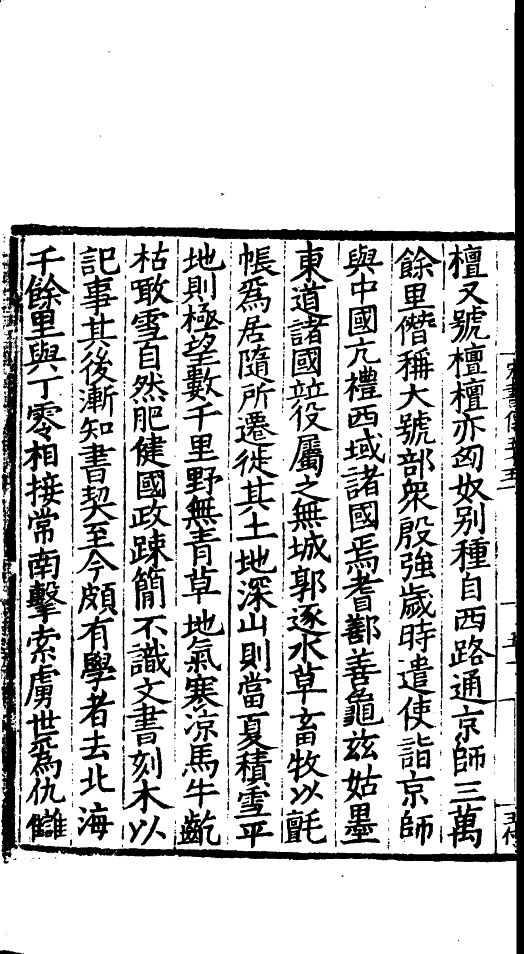 檀又號檀檀亦匈奴别種自西路通京師三萬
餘里僭稱大號部衆殷強歲時遣使詣京師
與中國亢禮西域諸國焉耆鄯善龜兹姑墨
東道諸國竝役屬之無城郭逐水草畜牧以氈
帳爲居隨所遷徙其土地深山則當夏積雪平
地則極望數千里野無青草地氣寒涼馬牛齕
枯噉雪自然肥健國政踈簡不識文書刻木以
記事其後漸知書契至今頗有學者去北海
千餘里與丁零相接常南擊索虜世爲仇讎